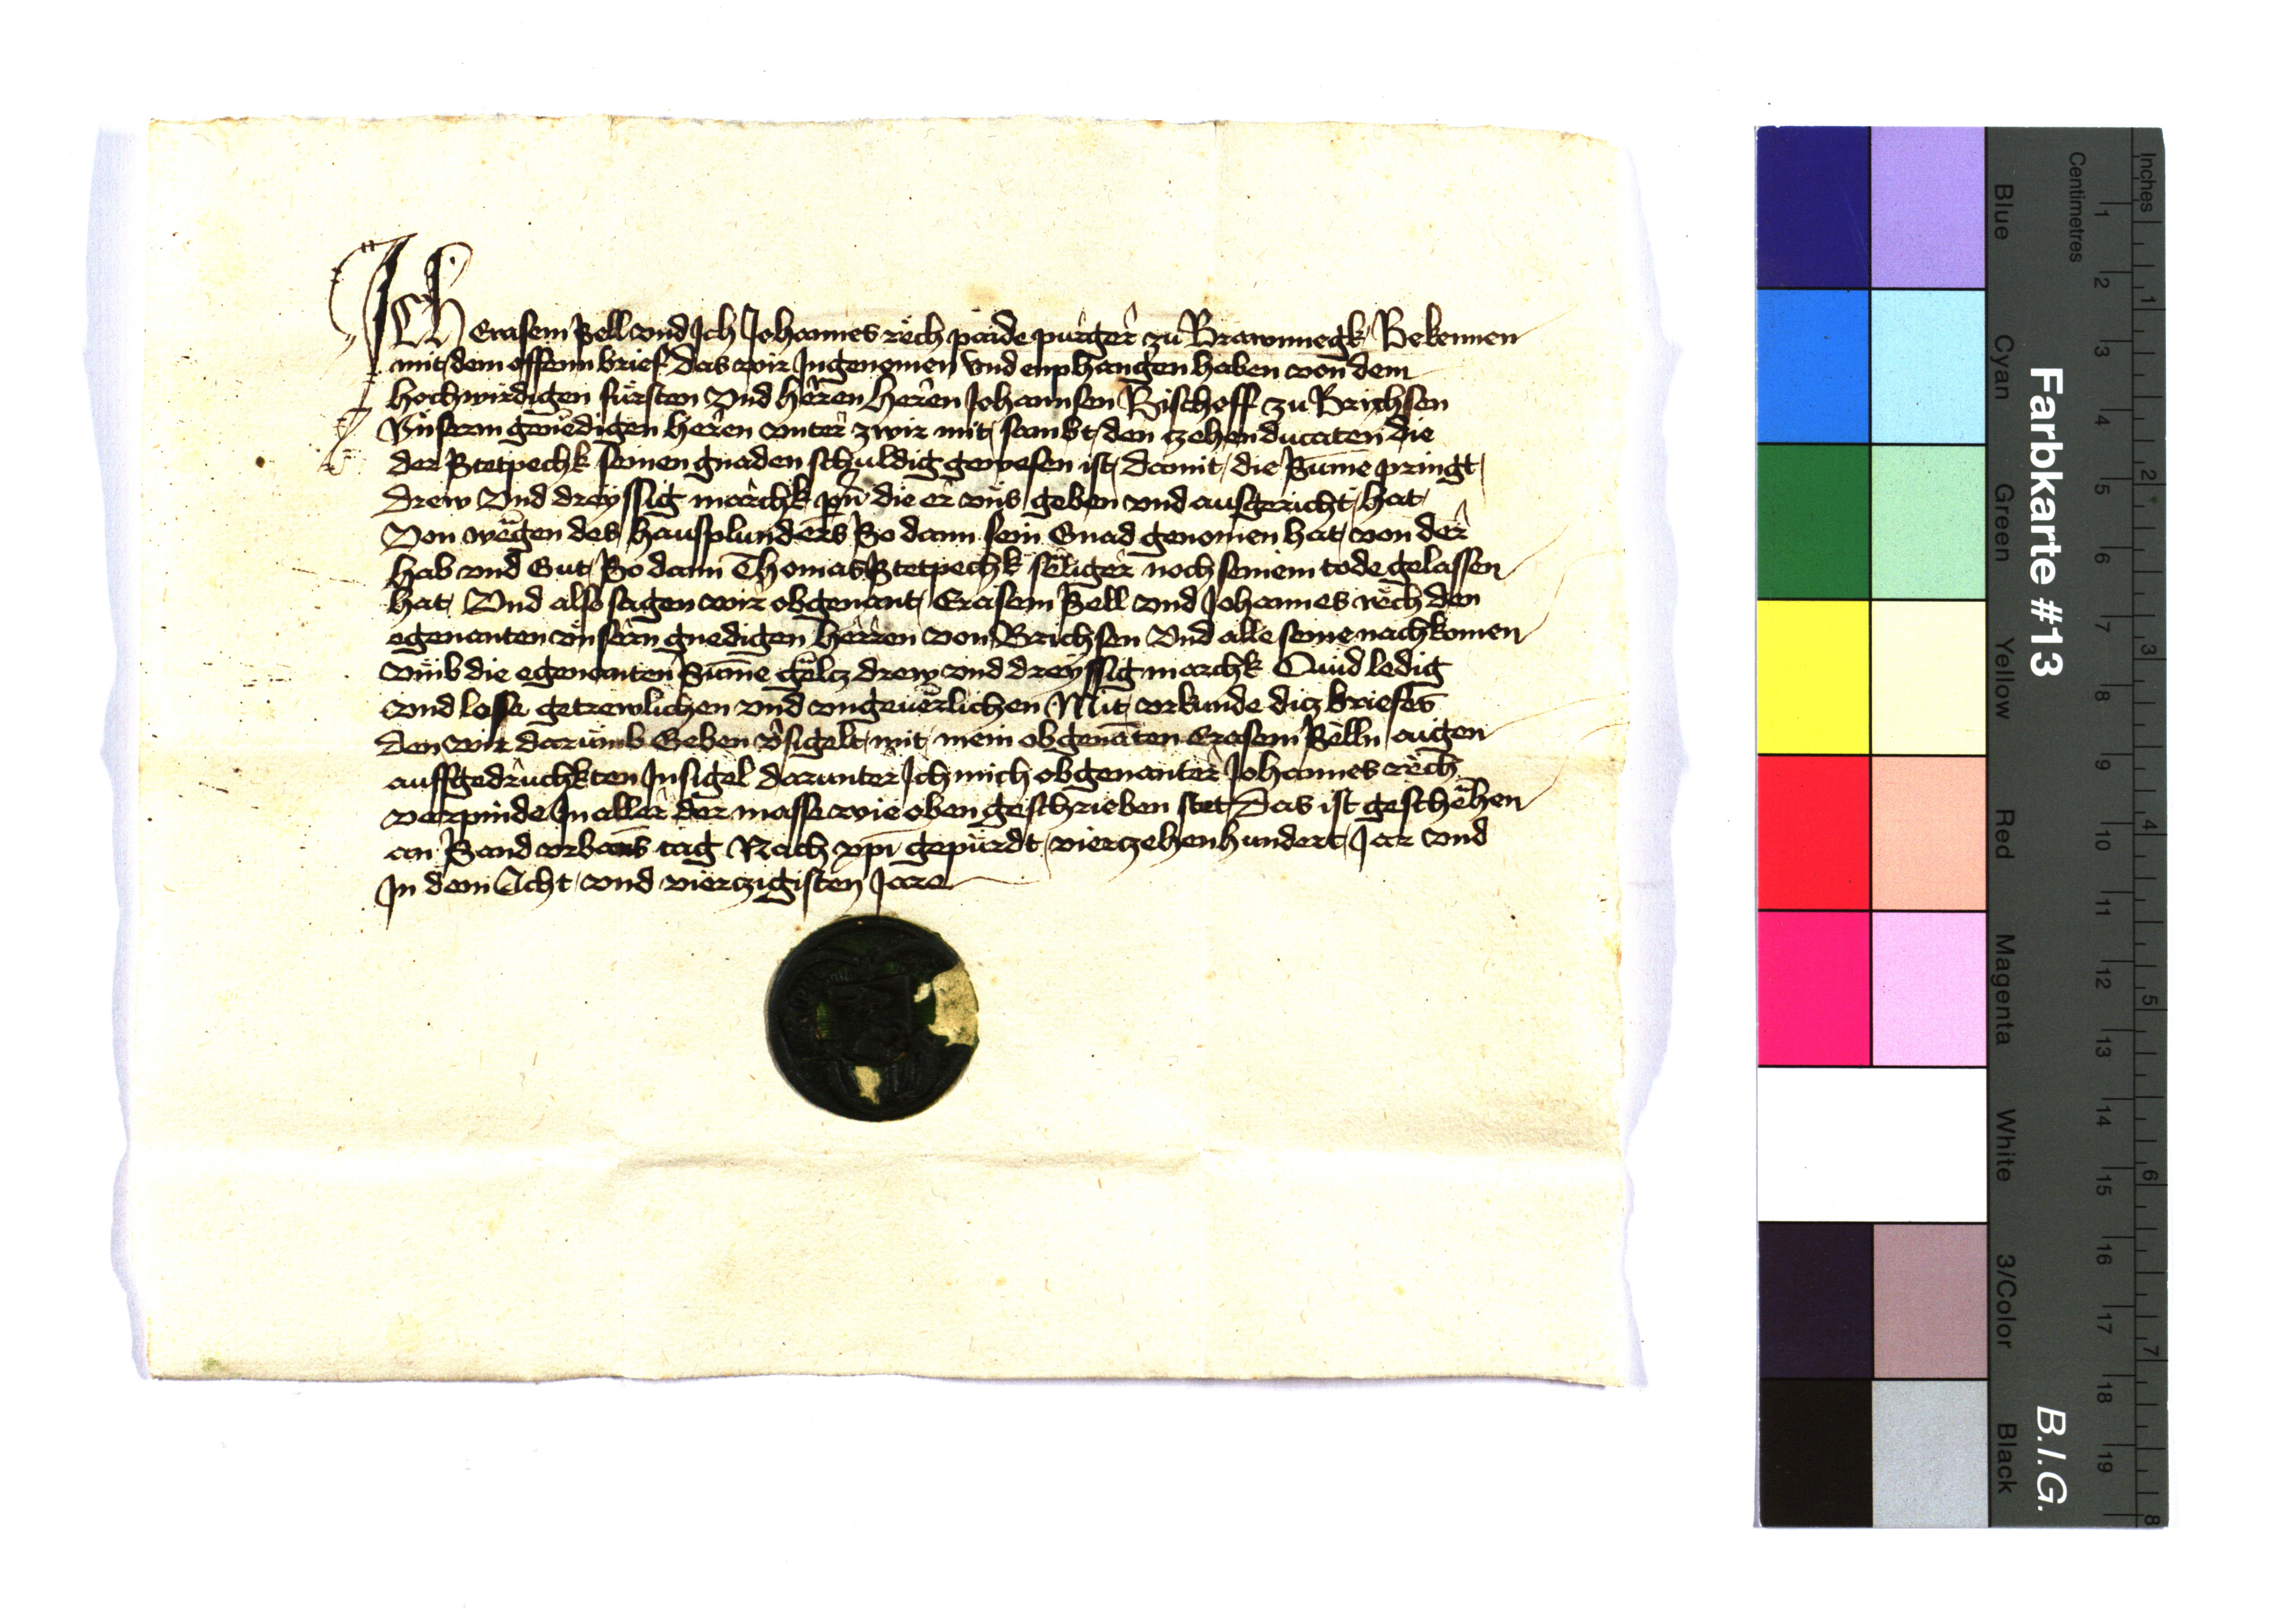 Ich Erasem Sell vnd Ich Johannes rëch paide purger zu Brawnnegk Bekennen
mit dem offenn brief das wir Ingenomen vnd enphangen haben von dem
hochwirdigen fürsten Vnd herren heren Johannsen Bischoff zu Brichsen
Vnserm gnedigen heren vnter zwir mit sambt den czehen ducaten die
der Stetpechk seinen gnaden schuldig gewesen ist damit die Sume pringt
drew Vnd dreyssig marchk die er vns geben vnd ausgericht hat
Von wegen des hausplunders So dann sein Gnad genomen hat von der
hab vnd Gut So dann Thomas Stetpechk seliger noch seinem tode gelassen
hat Vnd also sagen wir obgenant Erasem Sell vnd Johannes rëch den
egenanten vnsern gnedigen herren von Brichsen Vnd alle seine nachkomen
vmb die egenanten Sume geltz drew vnd dreyssig marchk Quid ledig
vnd losse getrewlichen vnd vngeuerlichen Mit vrkunde dicz briefes
den wir darumb Geben v̄sigelt mit mein obgenāten Erasem Selln aigen
auffgedruchkten Insigel darunter Ich mich obgenanter Johannes rech
verpinde In aller der masse wie oben geschrieben stet Das ist geschehen
an Sand vrbans tag Nach xpī gepurdt vierczehenhundert Jar vnd
In dem Acht vnd vierczigisten Jare
Farbkarte #13
B.I.G.
Inches
Centimetres
1 2 3 4 5 6 7 8
1 2 3 4 5 6 7 8 9 10 11 12 13 14 15 16 17 18 19
Blue
Cyan
Green
Yellow
Red
Magenta
White
3/Color
Black